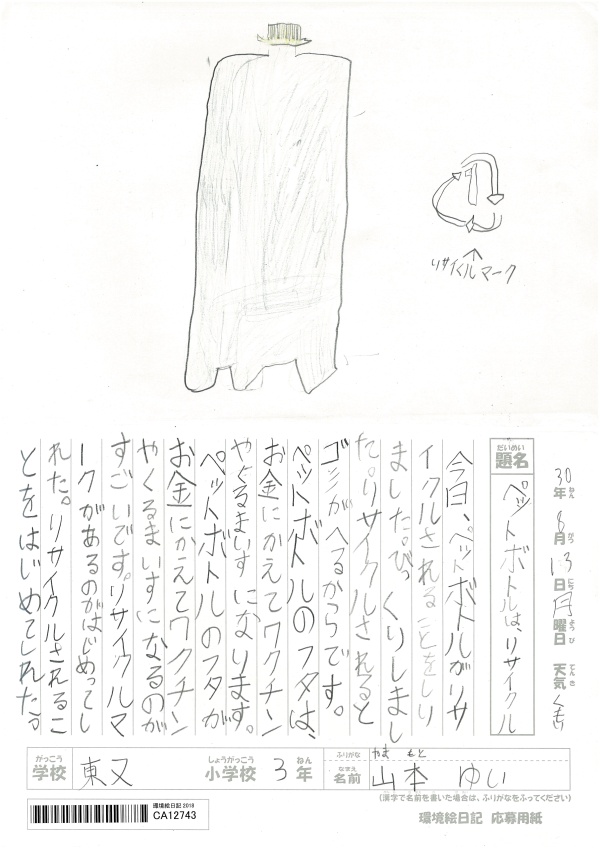 リサイクルマーク
30年 8月 13日 月曜日 天気
題名 ペットボトルは、リサイクル
だいめい
ねん がつ にち ようび てんき
今日、ペットボトルがリサ
イクルされることをしり
ました。びっくりしまし
た。リサイクルされると
ゴミがへるからです。
ペットボトルのフタは、
お金にかえてワクチン
やくるまいすになります。
ペットボトルのフタが
お金にかえてワクチン
やくるまいすになるのが
すごいです。リサイクルマ
ークがあるのがはじめってし
れた。リサイクルされるこ
とをはじめてしれた。
がっこう しょうがっこう ねん
学校 東又 小学校 3年
ふりがな やま もと
なまえ
名前 山本 ゆい
(漢字で名前を書いた場合は、ふりがなをふってください)
環境絵日記 2018
CA12743
環境絵日記 応募用紙